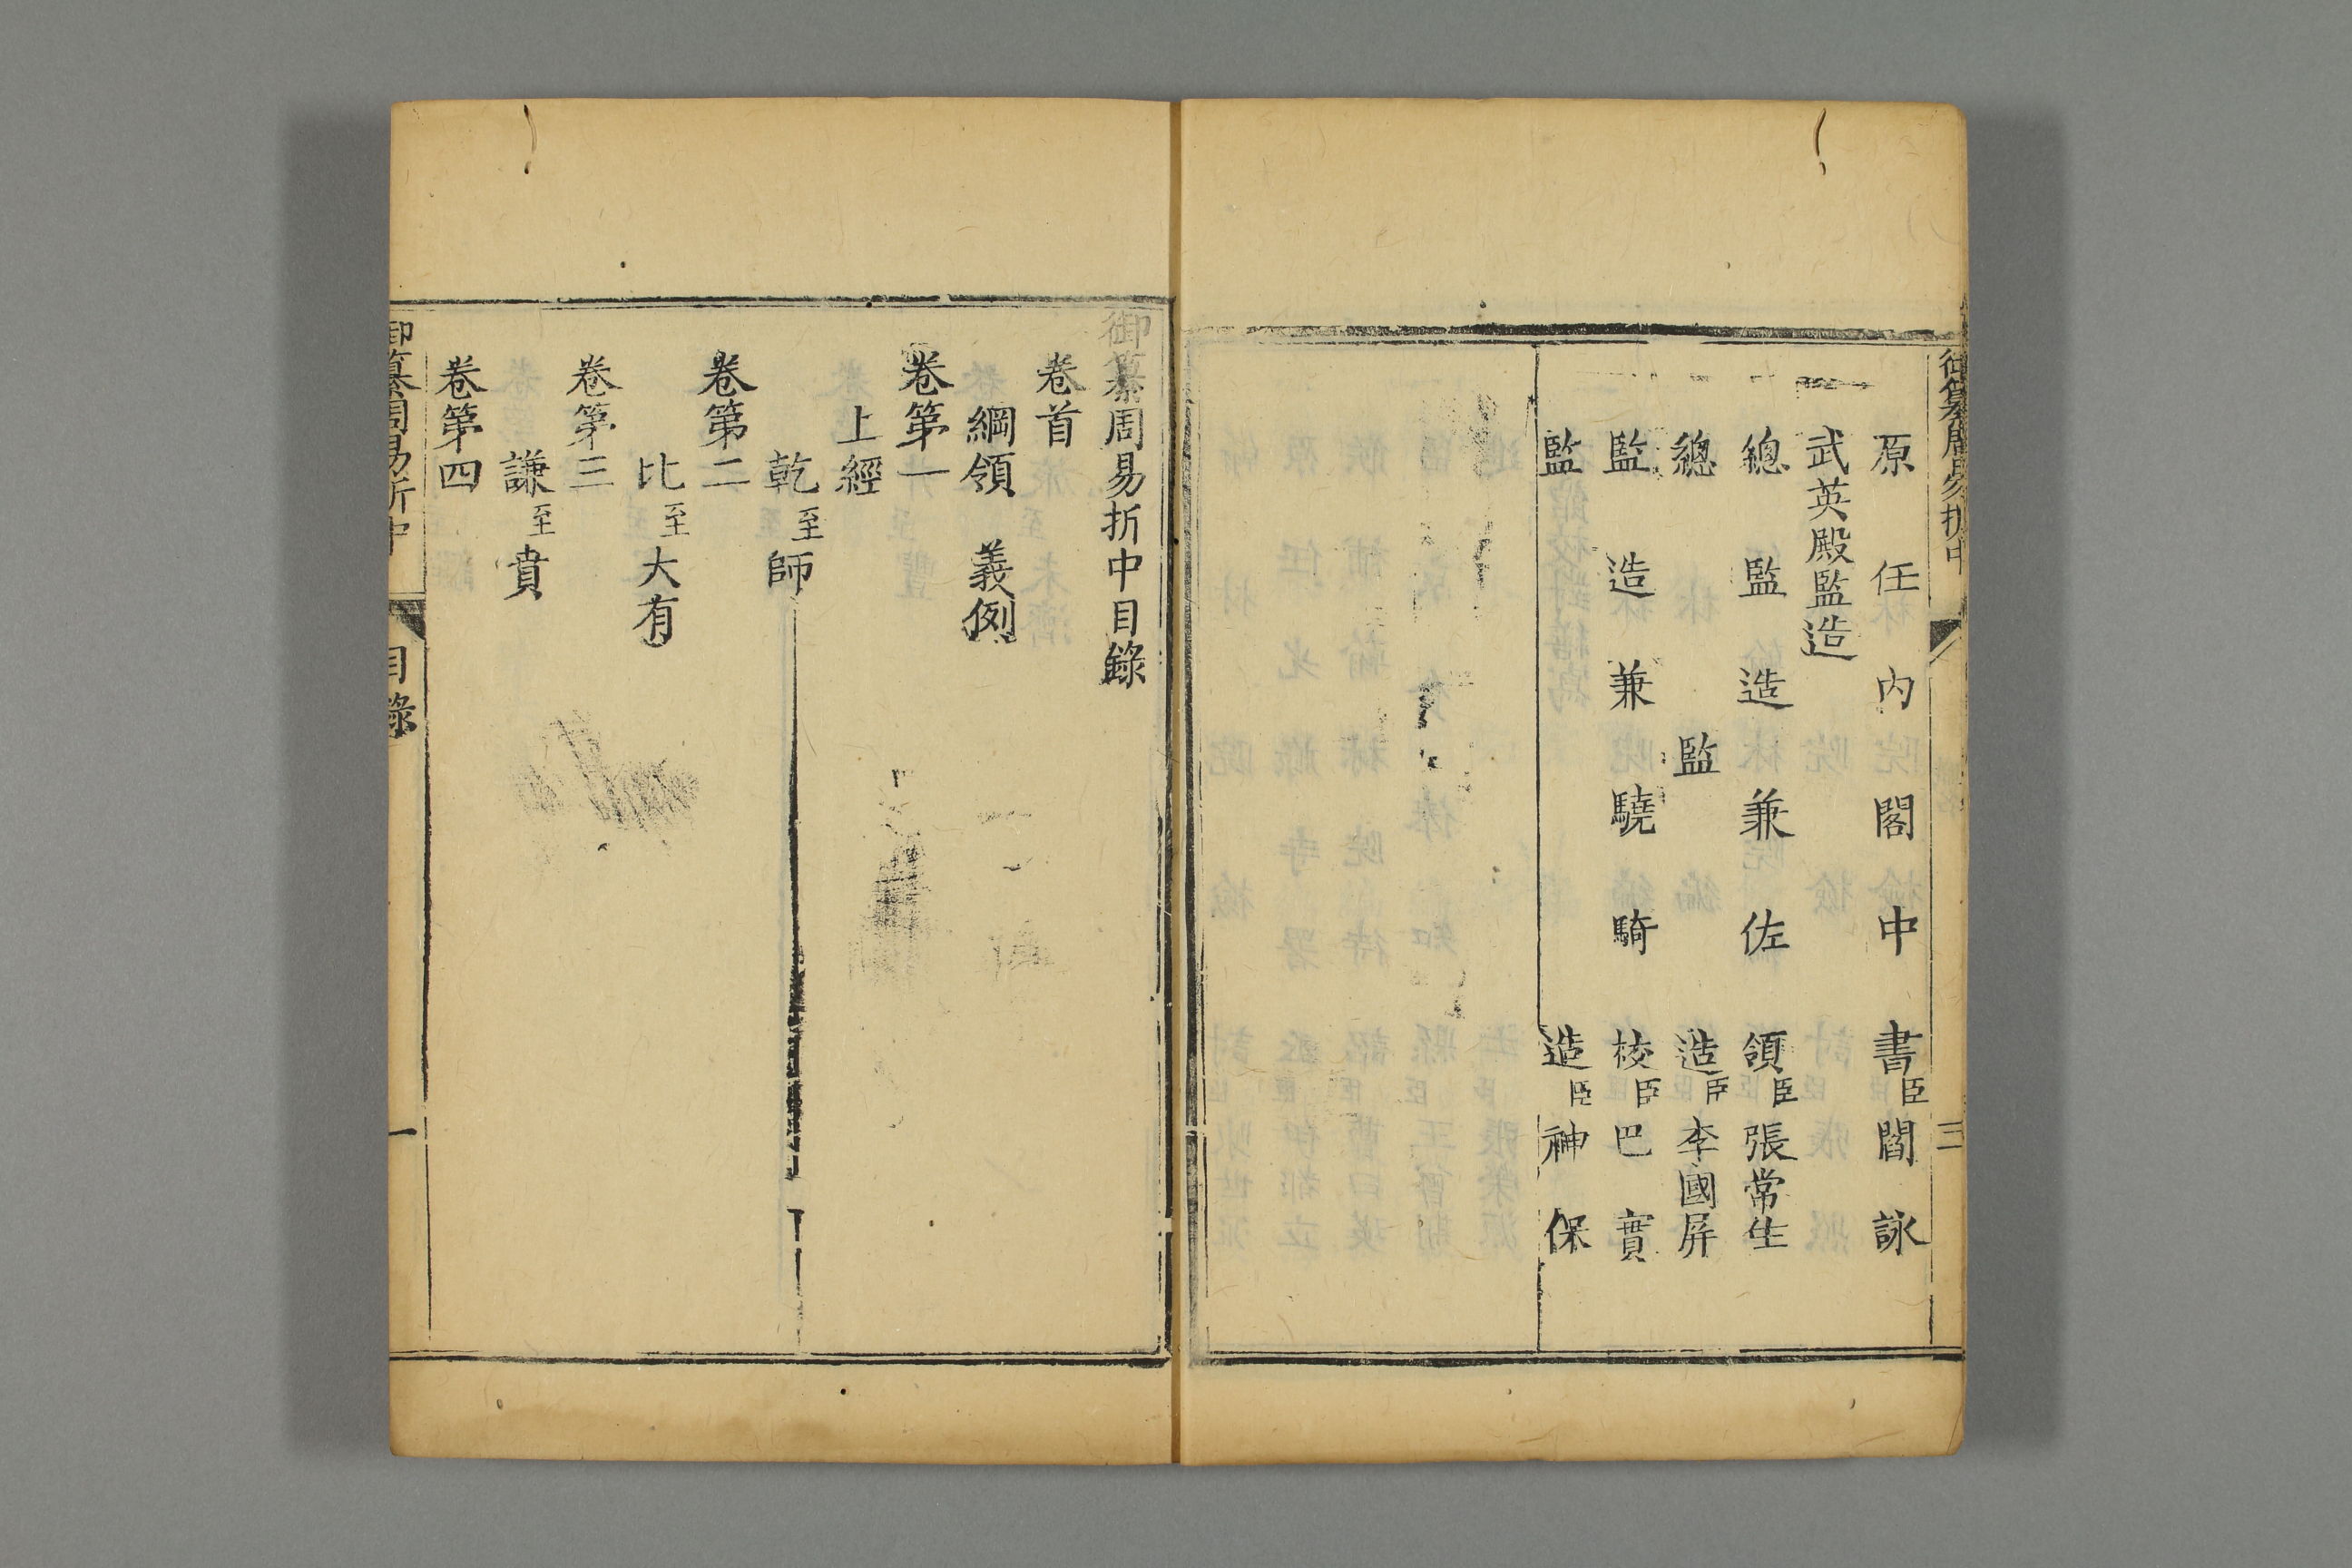 御纂周易折中
三
原任內閣中書臣閻詠
武英殿監造
總監造兼佐領臣張常生
總監造臣李國屏
監造兼驍騎校臣巴實
監造臣神保
御纂周易折中目錄
卷首
綱領 義例
卷第一
上經
乾至師
卷第二
比至大有
卷第三
謙至賁
卷第四
御纂周易折中
目錄
一